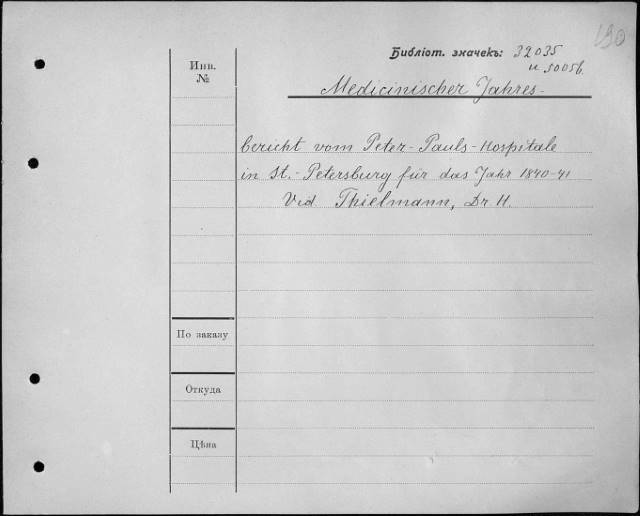 190
Библіот. значекъ: 32035
и 30056.
Инв.
№
Medicinischer Jahres-
bericht vom Peter-Pauls-Hospitale
in St.-Petersburg für das Jahr 1840-41
Vid Thielmann, Dr. H.
По заказу
Откуда
Цѣна